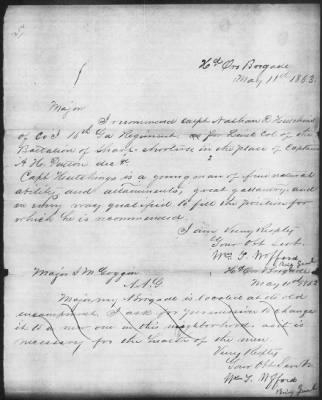 Hd Qrs Brigade
May 11th 1863
Major
I recommend Capt Nathan
of Co I 16th Ga Regiment for Lieut Col of the
Battalion of Sharp in the place of Captain
A H Patton decd
Capt Hutchings is a young man of fine natural
ability and attainments, great gallantry, and
in every way qualified to fill the position for
which he is recommended.
I am Very Resptly
Your Obt Servt.
Wm T. Wofford
Brig Genl
Major J M Goggin
A A G
Hd Qrs Brigade
May 10th 1863
Major, my Brigade is located at its old
encampment. I ask for permission to change
it to a new one in this neighborhood as it is
necessary for the health of the men.
Very Resptly
Your Obt Servt
Wm T. Wofford
Brig Genl